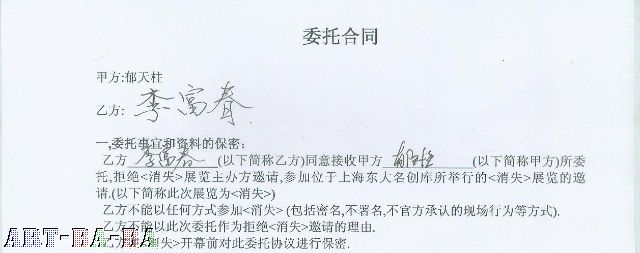 委托合同
甲方:郁天柱
乙方: 李富春
一,委托事宜和资料的保密:
乙方 李富春 (以下简称乙方)同意接收甲方 (以下简称甲方)所委
托,拒绝<消失>展览主办方邀请,参加位于上海东大名创库所举行的<消失>展览的邀
请.(以下简称此次展览为<消失>)
乙方不能以任何方式参加<消失> (包括密名,不署名,不官方承认的现场行为等方式).
乙方不能以此次委托作为拒绝<消失>邀请的理由.
<消失>开幕前对此委托协议进行保密.
ART-BA-BA